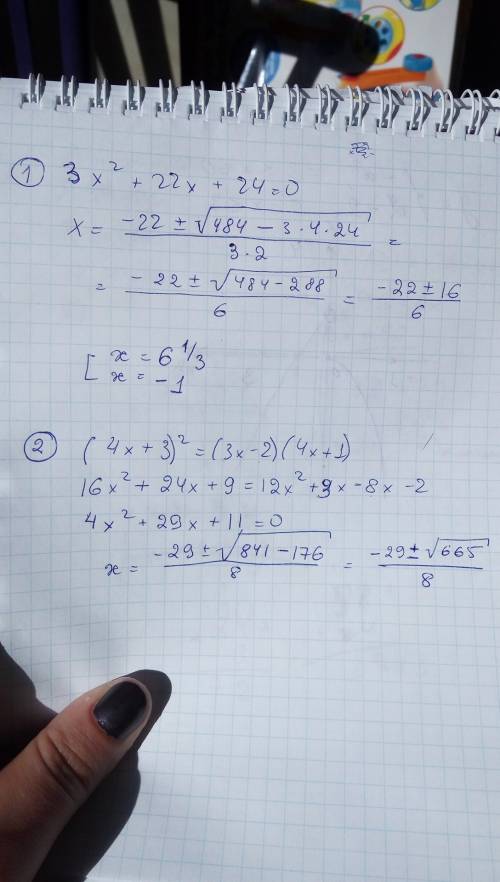 ① 3x² + 22x + 24 = 0
x = (-22 ± √(484 - 3·4·24)) / (3·2) =
= (-22 ± √(484 - 288)) / 6 = (-22 ± 16) / 6
[ x = 6 1/3
x = -1
② (4x + 3)² = (3x - 2)(4x + 1)
16x² + 24x + 9 = 12x² + 3x - 8x - 2
4x² + 29x + 11 = 0
x = (-29 ± √(841 - 176)) / 8 = (-29 ± √665) / 8